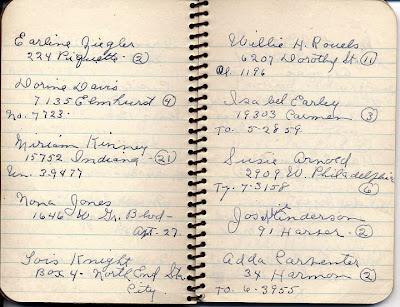 Earline Ziegler
224 Piquette - (2)
Dorine Davis
7135 Elmhurst (4)
No. 7723.
Miriam Kinney
15752 Indiana - (21)
Un. 39477
Nona Jones
1646 W. Gr. Blvd -
Apt. 27
Lois Knight
Box 4 - North End Sta.
City.
Willie H. Rouels
6207 Dorothy St. (11)
1196
Isabel Earley
19303 (3)
To. 5-2859
Susie Arnold
2909 W. Philadelphia
Ty. 7-3158 (6)
Anderson
91 Harper (2)
Adda Carpenter
34 Harmon (2)
To 6-3955